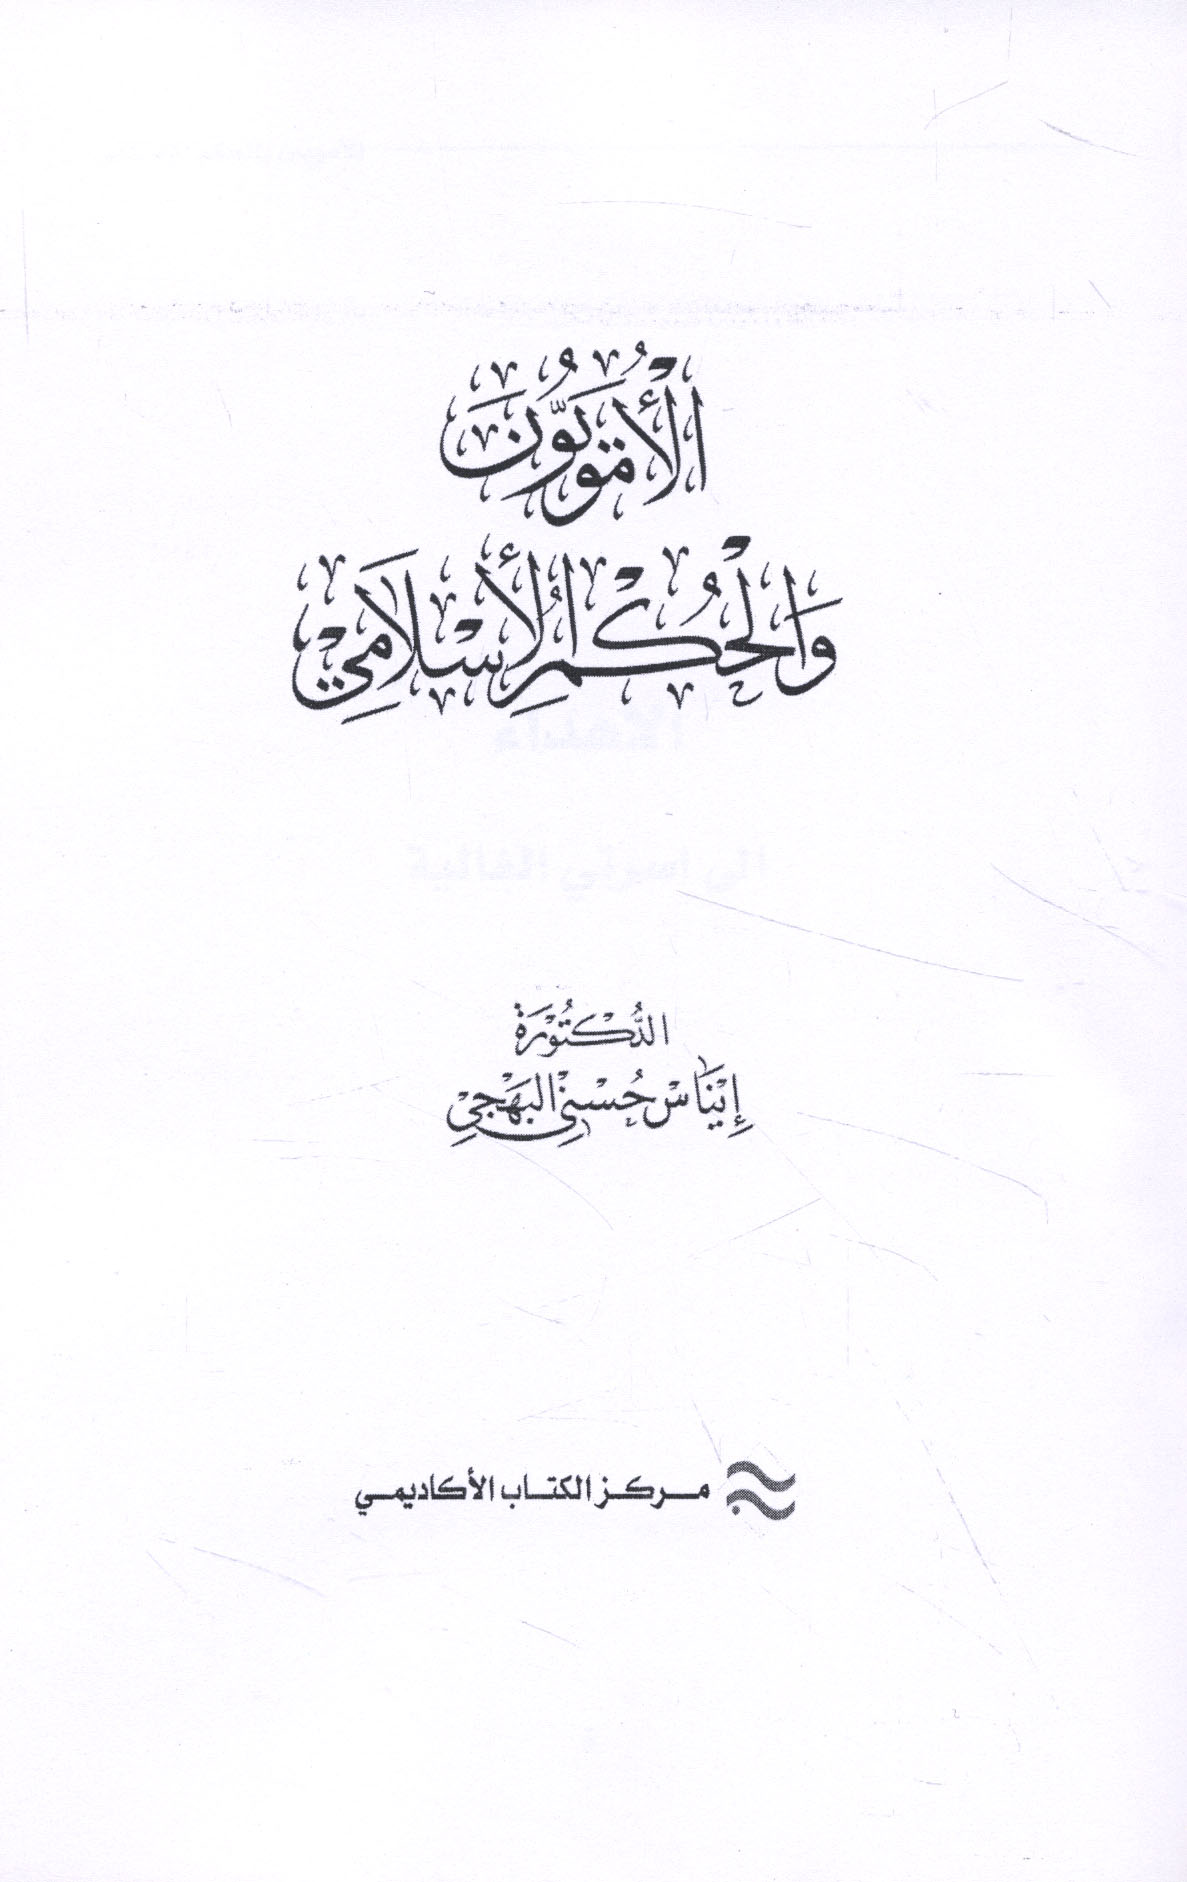 الأمويون
والحكم الإسلامي
الدكتورة
إيناس حسني البهجي
مركز الكتاب الأكاديمي